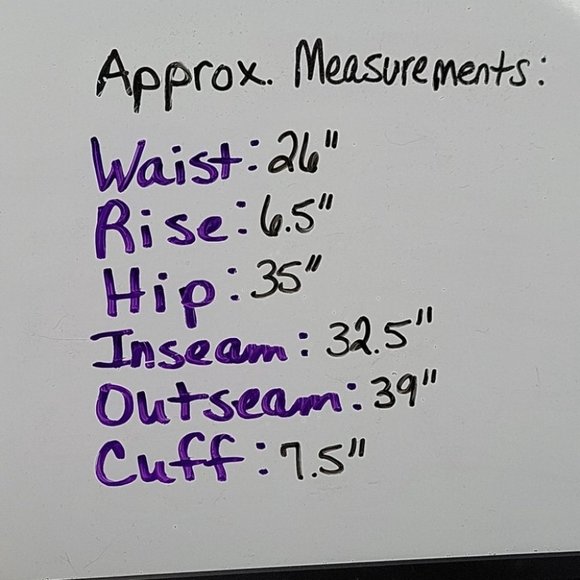 Approx. Measurements:
Waist: 26"
Rise: 6.5"
Hip: 35"
Inseam: 32.5"
Outseam: 39"
Cuff: 7.5"